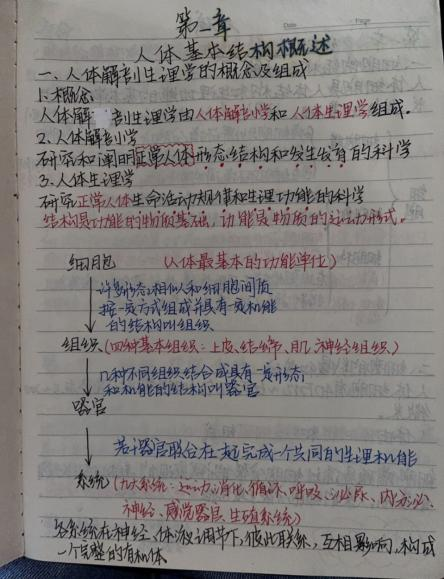 第一章
人体基本结构概述
一、人体解剖生理学的概念及组成
1.概念
人体解剖生理学由人体解剖学和人体生理学组成.
2.人体解剖学
研究和阐明正常人体形态结构和发生发育的科学
3.人体生理学
研究正常人体生命活动规律和生理功能的科学
结构是功能的物质基础,功能是物质的运动形式。
细胞 (人体最基本的功能单位)
许多形态相似和细胞间质
按一定方式组成并具有一定机能
的结构叫组织
组织(四种基本组织:上皮、结缔、肌、神经组织)
几种不同组织结合成具有一定形态
和机能的结构叫器官
器官
若干器官联合在一起完成一个共同的生理机能
系统(九大系统:运动、消化、循环、呼吸、泌尿、内分泌、
神经、感觉器官、生殖系统)
各系统在神经、体液调节下,彼此联系,互相影响,构成
一个完整的有机体